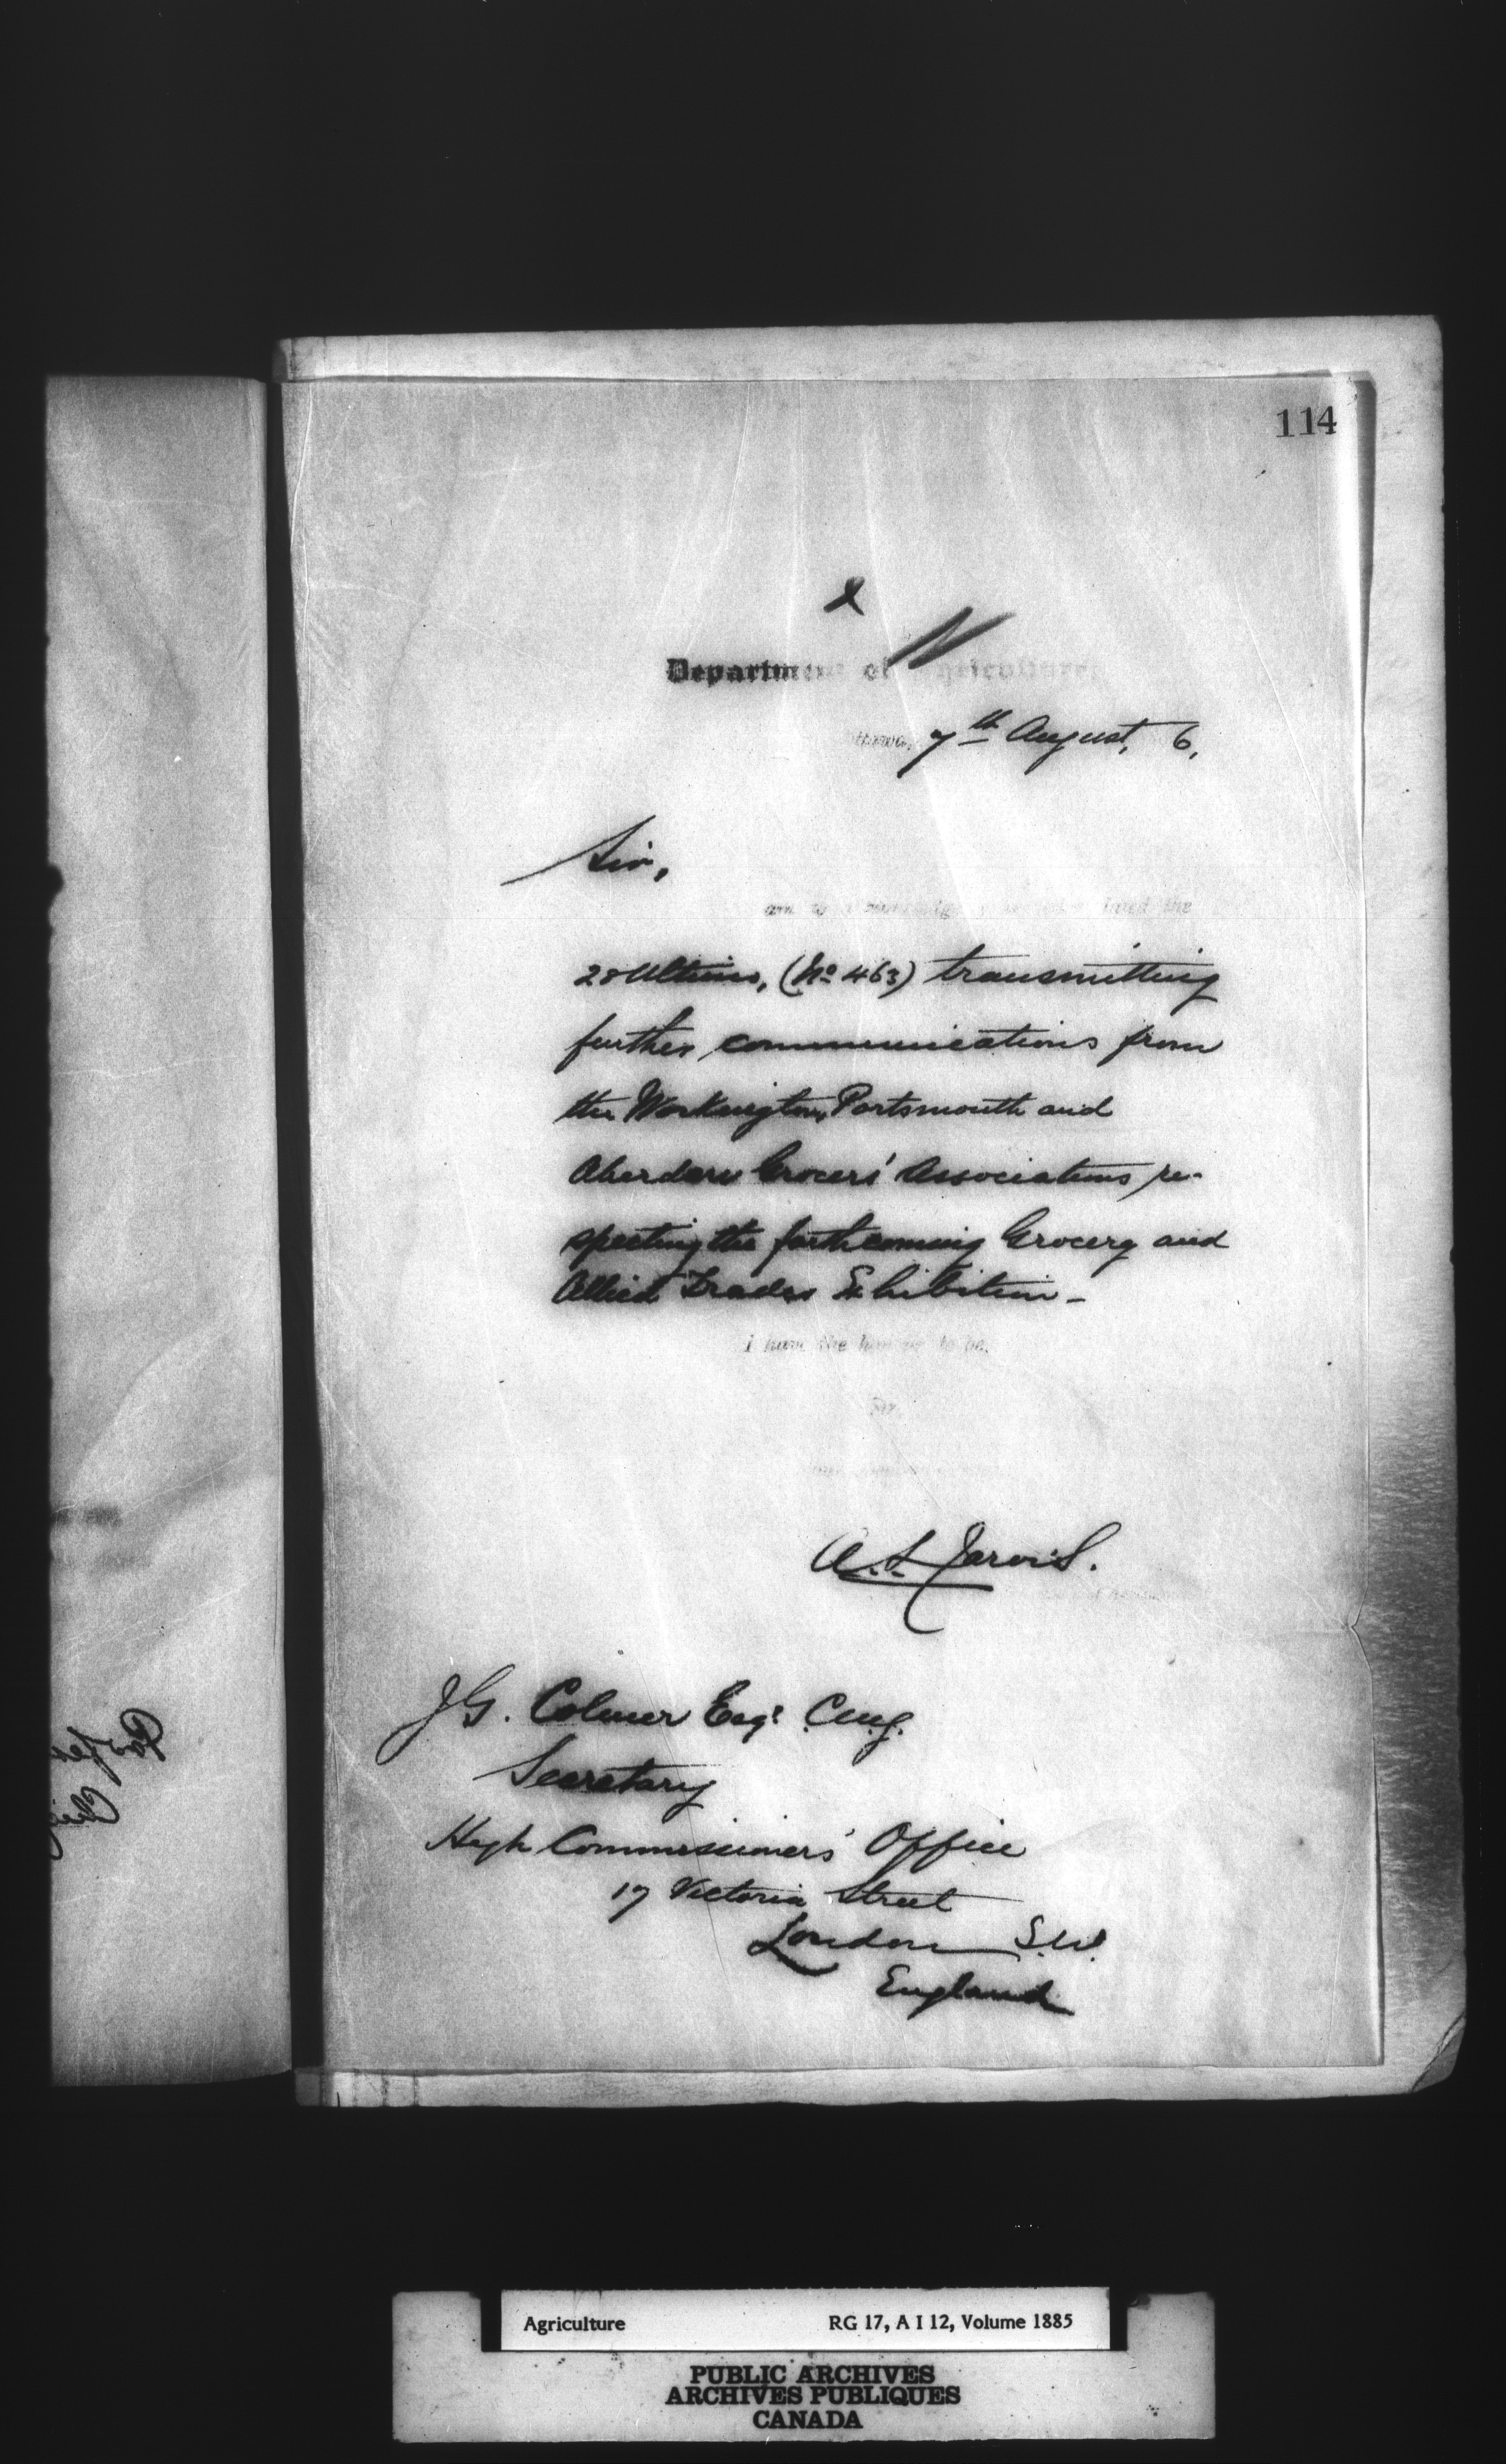 114
N
Department of Agriculture
7th August, 6,
Sir,
the
28 Ultimo, (No 463) transmitting
further communications from
the Workington, Portsmouth and
Aberdare Grocers' Associations re-
specting the forthcoming Grocery and
Allied Trades Exhibition -
I have the honour to be,
Sir,
A. L. Jarvis.
J G. Colmer Esqr. C.M.G.
Secretary
High Commissioners' Office
17 Victoria Street
London S.W.
England
Agriculture RG 17, A I 12, Volume 1885
PUBLIC ARCHIVES
ARCHIVES PUBLIQUES
CANADA